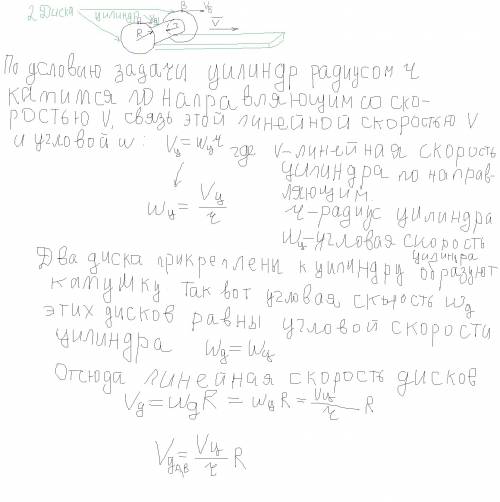 2 Диска цилиндр B Vв
V
R
По условию задачи цилиндр радиусом r
катится по направляющим со ско-
ростью V, связь этой линейной скоростью V
и угловой w: Vц = wц r где V-линейная скорость
цилиндра по направ-
ляющим.
wц = Vц / r
r-радиус цилиндра
Wц=угловая скорость
цилиндра
Два диска прикреплены к цилиндру образуют
катушку Так вот угловая скорость wд
этих дисков равны угловой скорости
цилиндра wд = wц
Отсюда линейная скорость дисков
Vд = wд R = wц R = Vц / r R
Vд A,B = Vц / r R